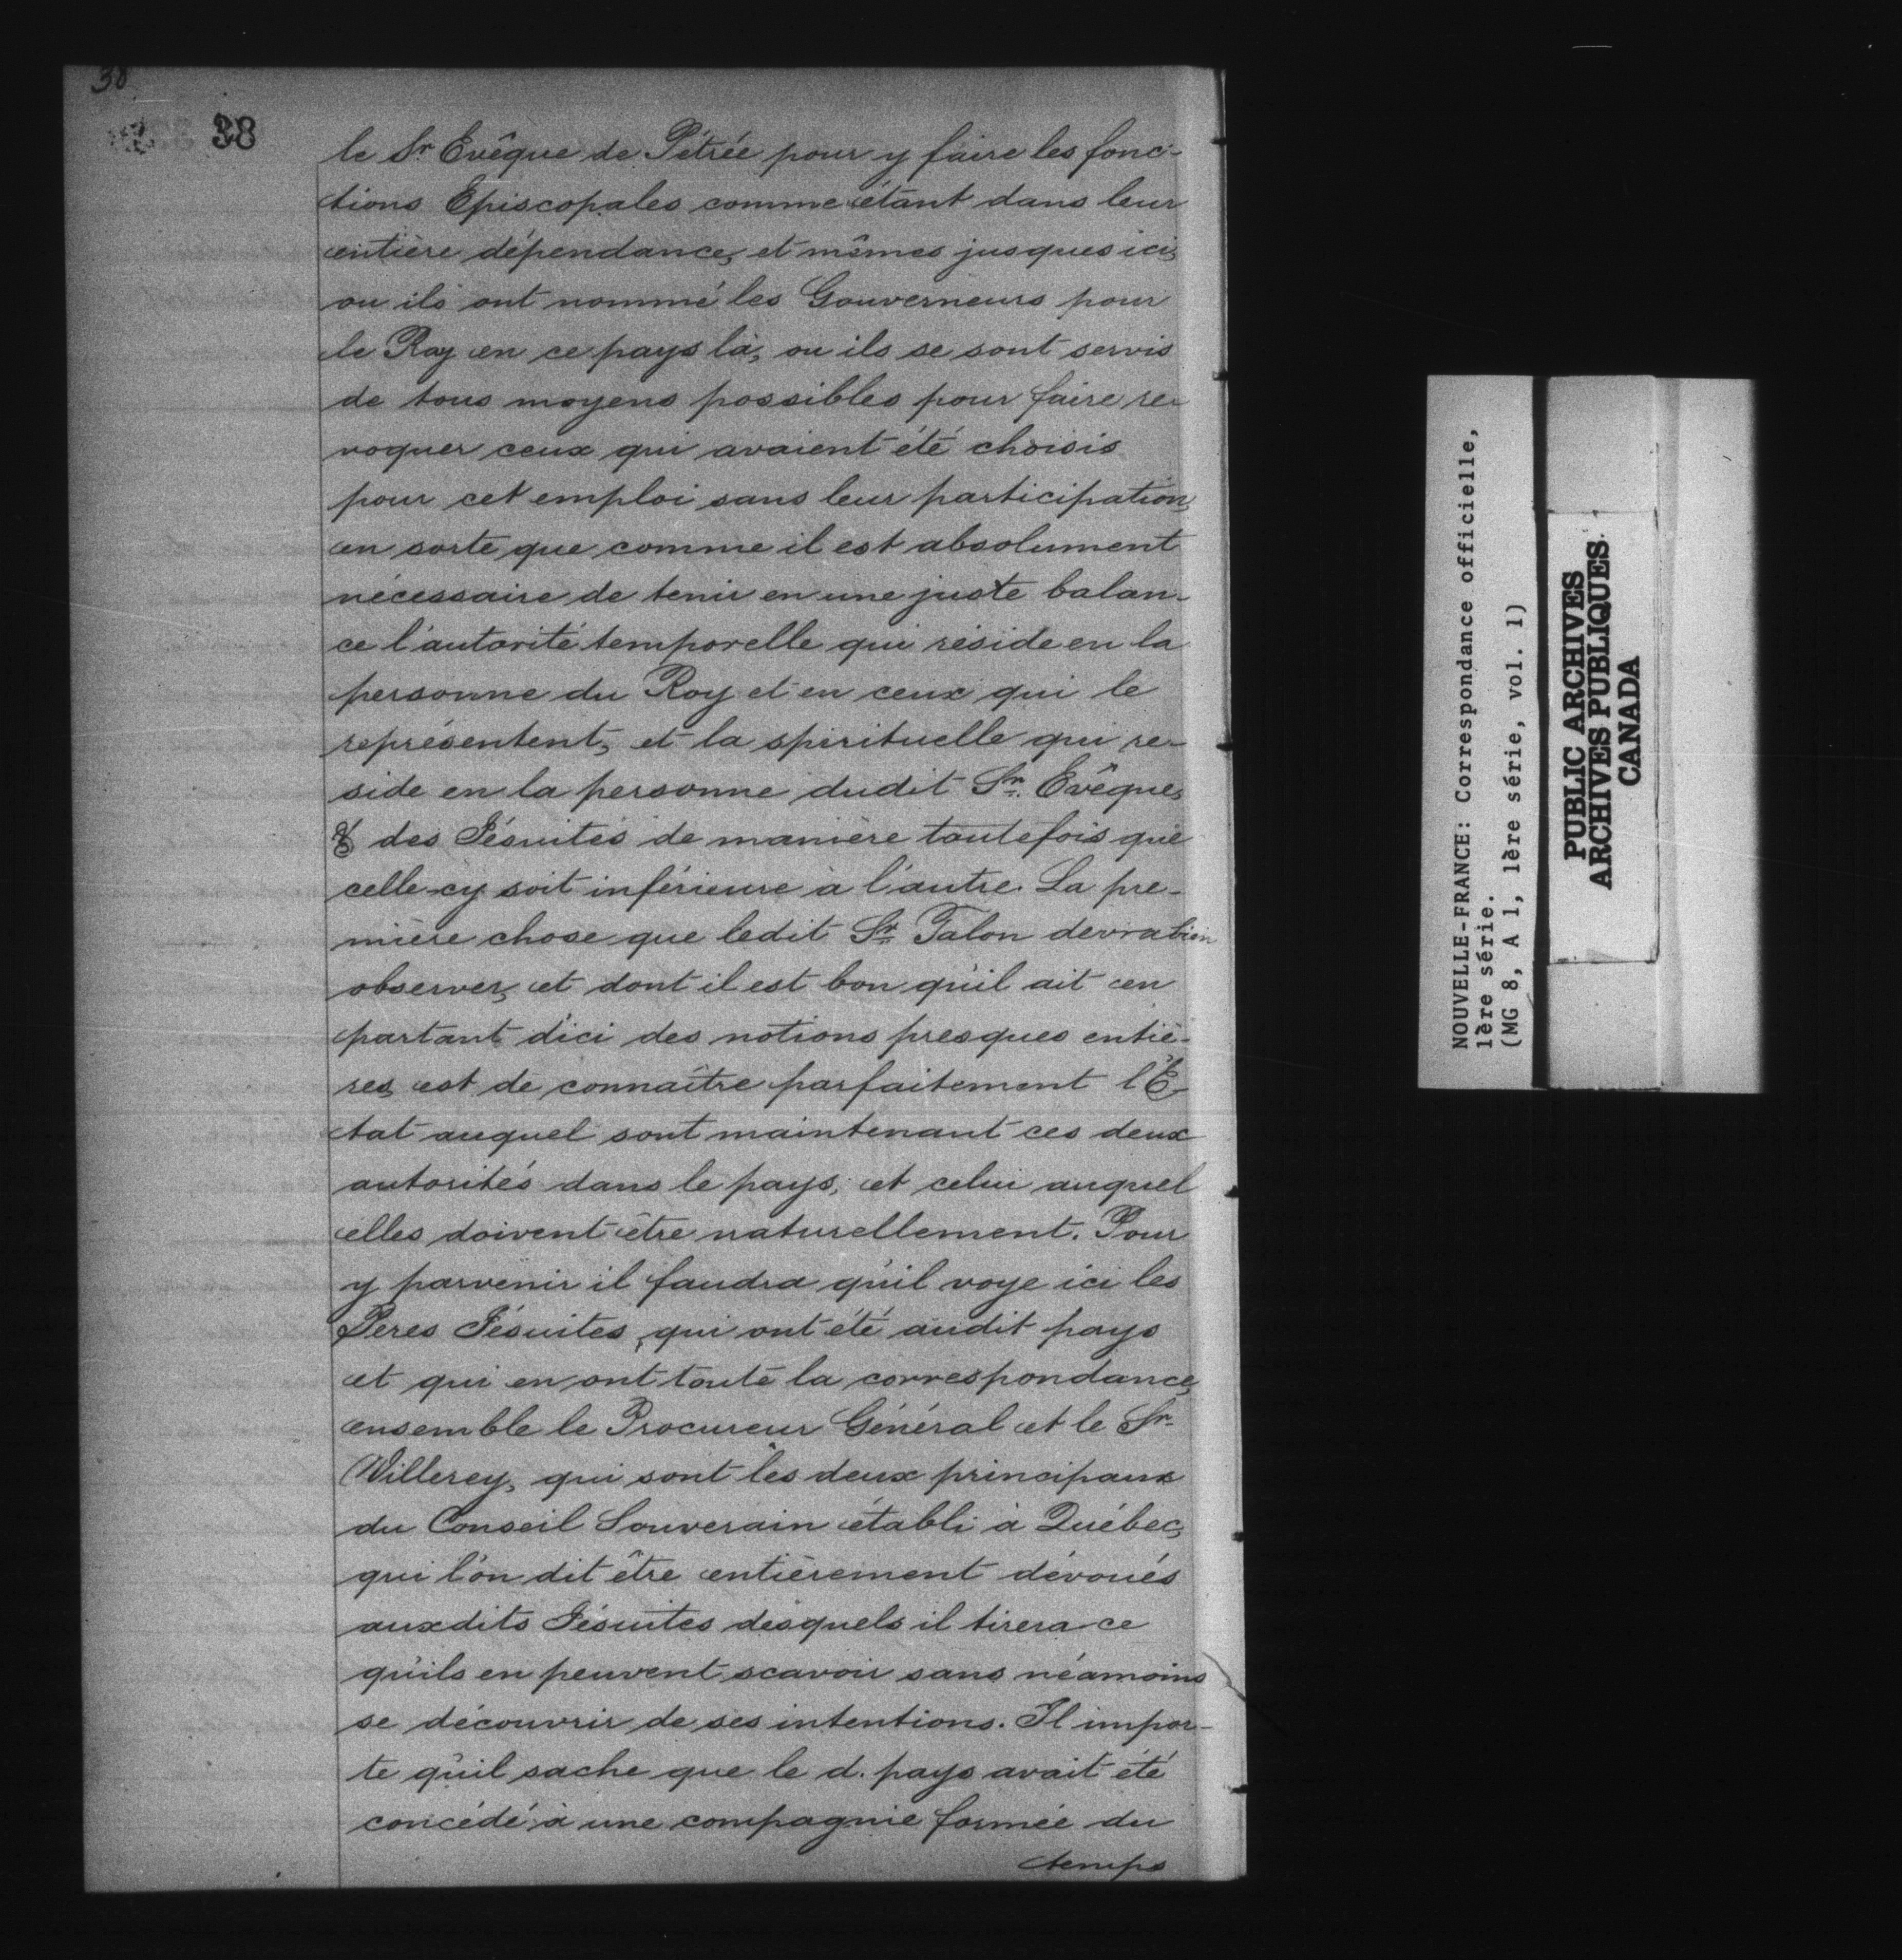 38
38
le Sr Evêque de Pétrée pour y faire les fonc-
tions Episcopales comme étant dans leur
entière dépendance, et mêmes jusques ici,
ou ils ont nommé les Gouverneurs pour
le Roy en ce pays là, ou ils se sont servis
de tous moyens possibles pour faire re-
voquer ceux qui avaient été choisis
pour cet emploi sans leur participation,
en sorte que comme il est absolument
nécessaire de tenir en une juste balan-
ce l'autorité temporelle qui réside en la
personne du Roy et en ceux qui le
représentent, et la spirituelle qui re-
side en la personne dudit Sr. Evêque,
& des Jésuites de manière toutefois que
celle-cy soit inférieure à l'autre. La pre-
mière chose que ledit Sr Talon devra bien
observer, et dont il est bon qu'il ait en
partant d'ici des notions presques entiè-
res, est de connaître parfaitement l'E-
tat auquel sont maintenant ces deux
autorités dans le pays, et celui auquel
elles doivent être naturellement. Pour
y parvenir il faudra qu'il voye ici les
Peres Jésuites, qui ont été audit pays
et qui en ont toute la correspondance,
ensemble le Procureur Général et le Sr
Villerey, qui sont les deux principaux
du Conseil Souverain établi à Québec,
qui l'on dit être entièrement dévoués
auxdits Jésuites desquels il tirera ce
qu'ils en peuvent scavoir sans néamoins
se découvrir de ses intentions. Il impor-
te qu'il sache que le d. pays avait été
concédé à une compagnie formée du
temps
NOUVELLE-FRANCE: Correspondance officielle,
1ère série.
(MG 8, A 1, 1ère série, vol. 1)
PUBLIC ARCHIVES
ARCHIVES PUBLIQUES
CANADA